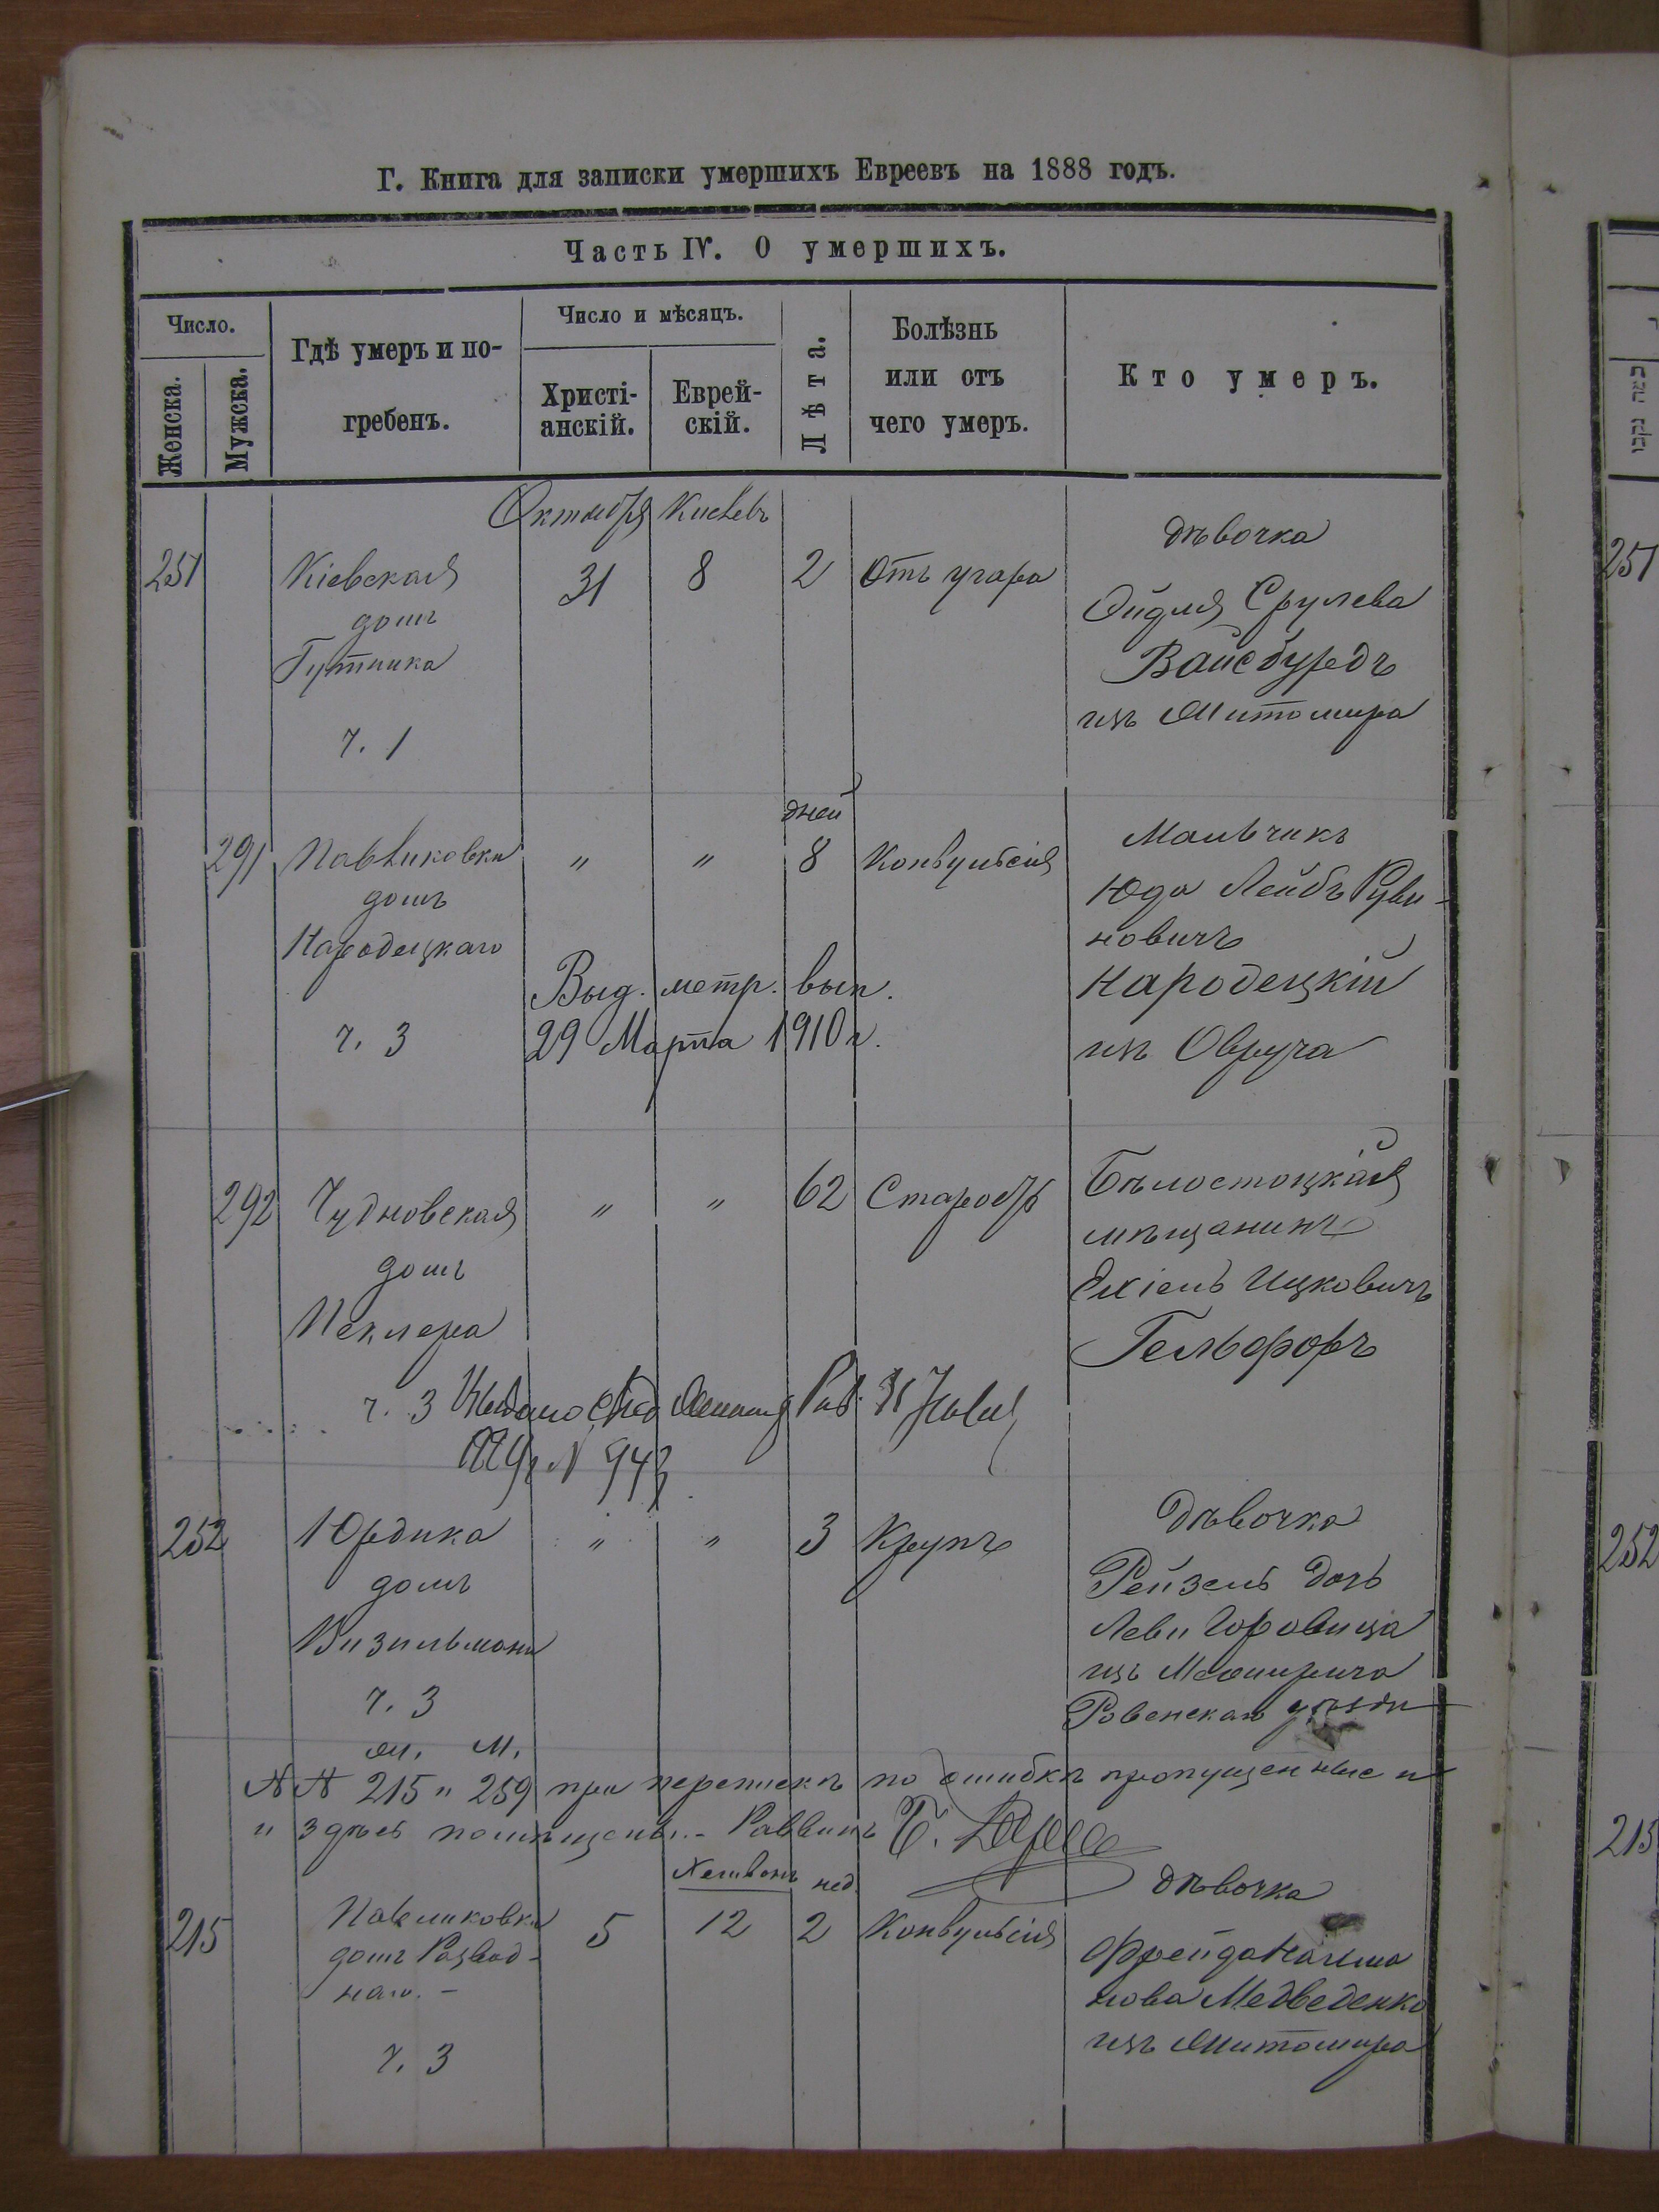 Г. Книга для записки умершихъ Евреевъ на 1888 годъ.
Часть IV. О умершихъ.
Число.
Женска.
Мужска.
Гдѣ умеръ и по-
гребенъ.
Число и мѣсяцъ.
Христі-
анскій.
Еврей-
скій.
Лѣта.
Болѣзнь
или отъ
чего умеръ.
Кто умеръ.
Октября Кислевъ
251 Кіевская 31 8 2 Отъ угара дѣвочка
домъ
Гутника
ч. 1
Ойдля Срулева
Вайсбурдъ
изъ Житомира
дней
291 Павликовки " " 8 Конвульсія Мальчикъ
домъ
Народецкаго
ч. 3
Юда Лейбъ Руви-
новичъ
Народецкій
изъ Овруча
Выд. метр. вып.
29 Марта 1910 г.
292 Чудновская " " 62 Старость Бѣлостоцкій
домъ
Пеклера
ч. 3
мѣщанинъ
Ехіель Ицковичъ
Гельфоръ
N 943
252 Юрдика " " 3 Крупъ Дѣвочка
домъ
Визильмана
ч. 3
Рейзель дочь
Леви Горовица
изъ Межирича
Ровенскаго уѣзда
ж. м.
NN 215 и 259 при перепискѣ по ошибкѣ пропущенные и
и здѣсь помѣщены. - Раввинъ
Хешвонъ нед.
215 Павликовки 5 12 2 Конвульсія дѣвочка
домъ Развод-
наго. -
ч. 3
Фрейда Нахма
нова Медведенко
изъ Житомира
251
252
215